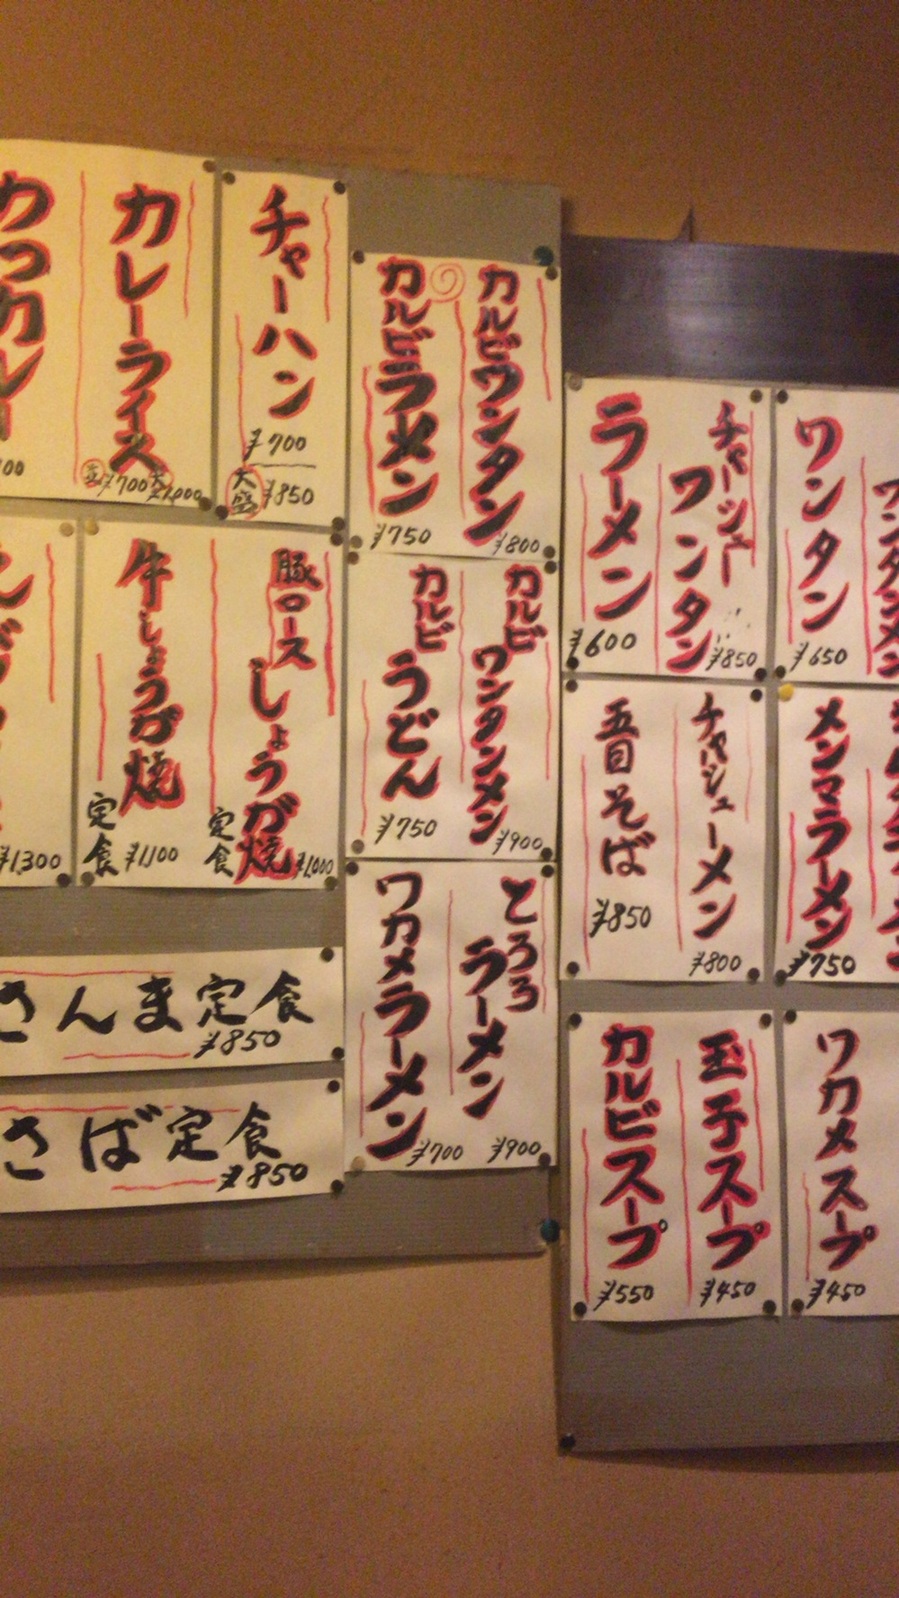 カレーライス
並¥700 大¥1,000
カツカレー
チャーハン
¥700
大盛 ¥850
カルビワンタン
¥800
カルビラーメン
¥750
チャーシュー
ワンタン
¥850
ラーメン
¥600
ワンタン
¥650
豚ロース
しょうが焼
定食 ¥1,000
牛しょうが焼
定食 ¥1,100
¥1,300
カルビ
ワンタンメン
¥900
カルビ
うどん
¥750
チャーシューメン
¥800
五目そば
¥850
メンマラーメン
¥750
とろろ
ラーメン
¥900
ワカメラーメン
¥700
さんま定食
¥850
さば定食
¥850
玉子スープ
¥450
カルビスープ
¥550
ワカメスープ
¥450